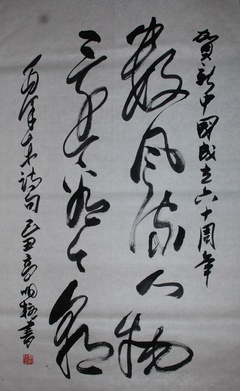 賀新中國成立六十周年
数风流人物
还看今朝
毛泽东诗句 己丑 书